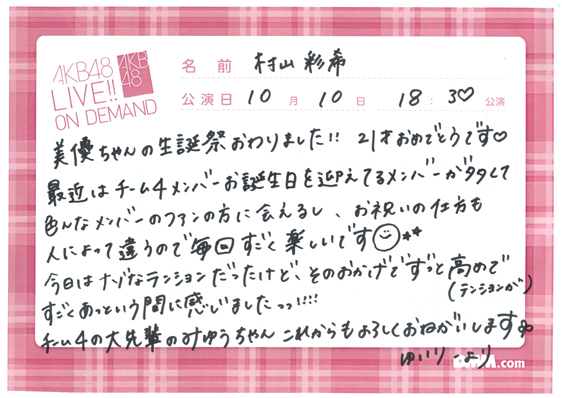 AKB48
LIVE!!
ON DEMAND
AKB
48
名前 村山彩希
公演日 10月10日 18:30公演
美優ちゃんの生誕祭おわりました!! 21才おめでとうです♡
最近はチーム4メンバーお誕生日を迎えてるメンバーが多くて
色んなメンバーのファンの方に会えるし、お祝いの仕方も
人によって違うので毎回すごく楽しいです☺**
今日はナゾなテンションだったけど、そのおかげでずっと高めで
(テンションが)
すごくあっという間に感じましたっっ!!!!
チーム4の大先輩のみゆうちゃんこれからもよろしくおねがいします
ゆいりーより
.com